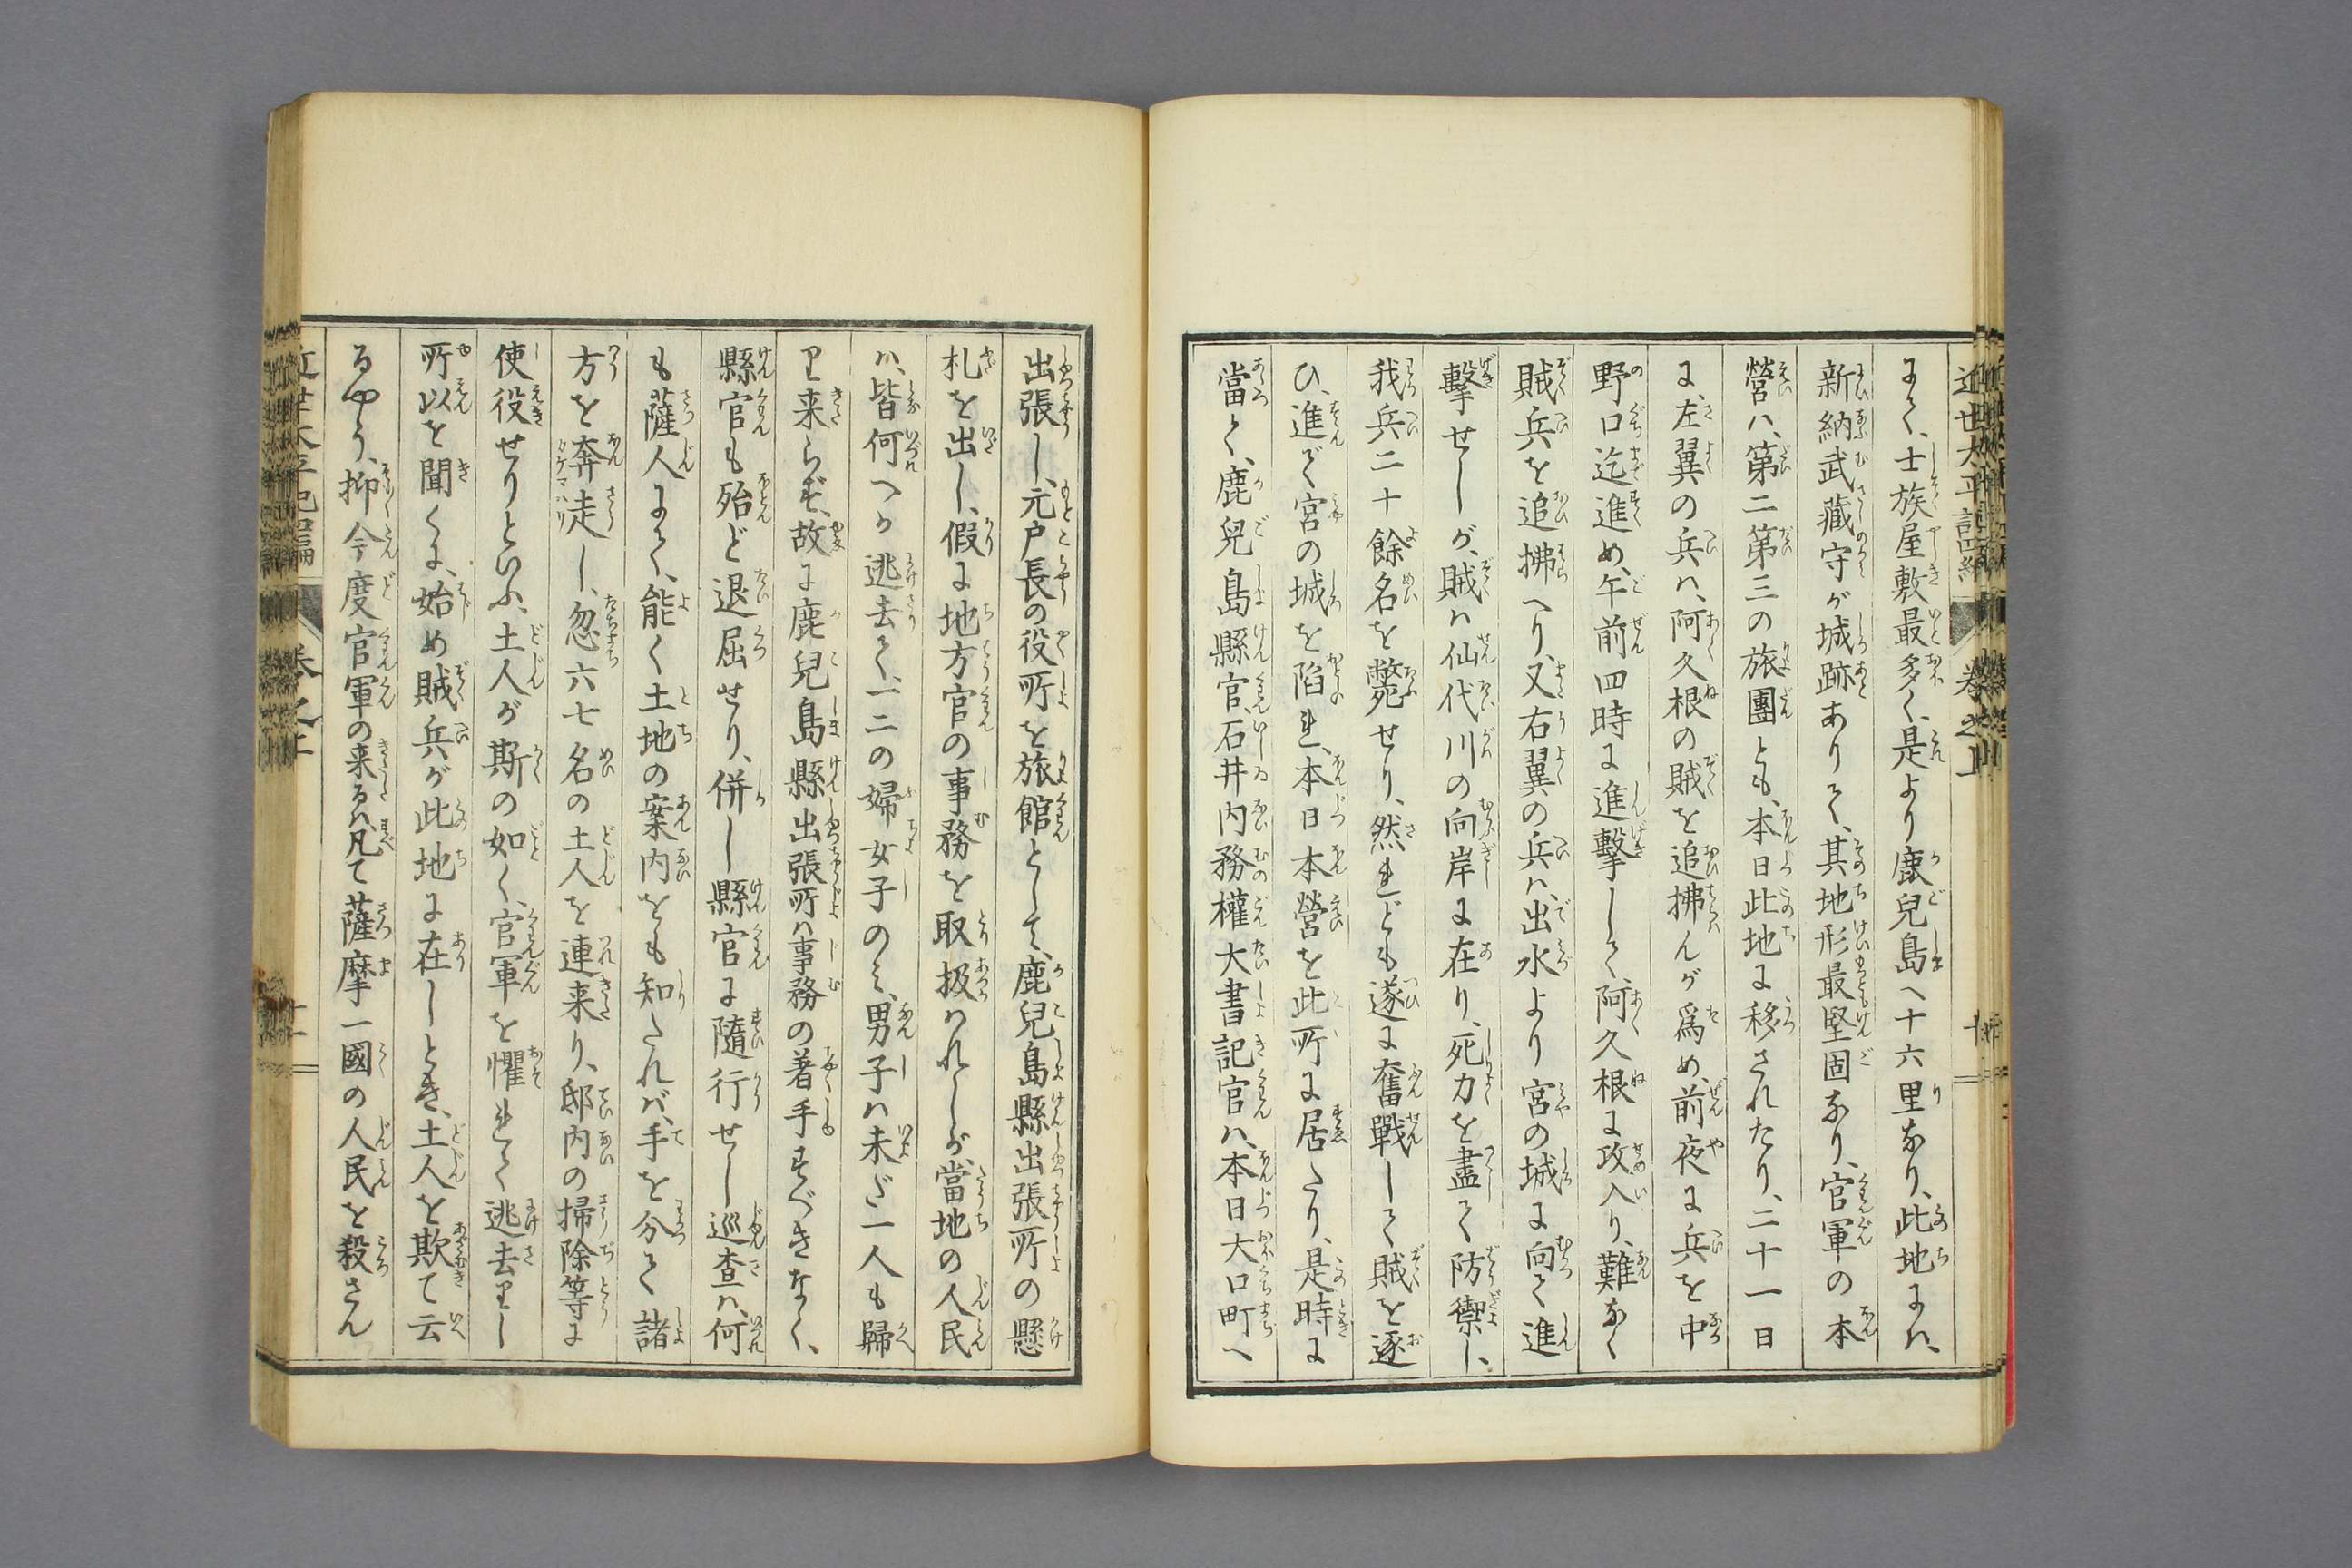 近世太平記四編 卷之上 十
にて、士族屋敷最多く、是より鹿兒島へ十六里なり、此地には、
新納武藏守が城跡ありて、其地形最堅固なり、官軍の本
營ハ、第二第三の旅團とも、本日此地に移されたり、二十一日
に、左翼の兵ハ、阿久根の賊を追拂んが爲め、前夜に兵を中
野口迄進め、午前四時に進擊して、阿久根に攻入り、難なく
賊兵を追拂へり、又右翼の兵ハ、出水より宮の城に向て進
擊せしが、賊ハ仙代川の向岸に在り、死力を盡して防禦し、
我兵二十餘名を斃せり、然れども遂に奮戰して賊を逐
ひ、進で宮の城を陷れ、本日本營を此所に居たり、是時に
當て、鹿兒島縣官、石井内務權大書記官ハ、本日大口町へ
出張し、元戸長の役所を旅館として、鹿兒島縣出張所の懸
札を出し、假に地方官の事務を取扱はれしが、當地の人民
ハ、皆何へか逃去て、一二の婦女子のミ、男子ハ未だ一人も歸
り来らず、故に鹿兒島縣出張所ハ事務の著手すべきなく、
縣官も殆ど退屈せり、併し縣官に隨行せし巡查ハ、何
も薩人にて、能く土地の案内をも知たれバ、手を分て諸
方を奔走し、忽六七名の土人を連来り、邸内の掃除等に
使役せりといふ、土人が斯の如く、官軍を懼れて逃去りし
所以を聞くに、始め賊兵が此地に在しとき、土人を欺て云
るやう、抑今度官軍の来るハ凡て薩摩一國の人民を殺さん